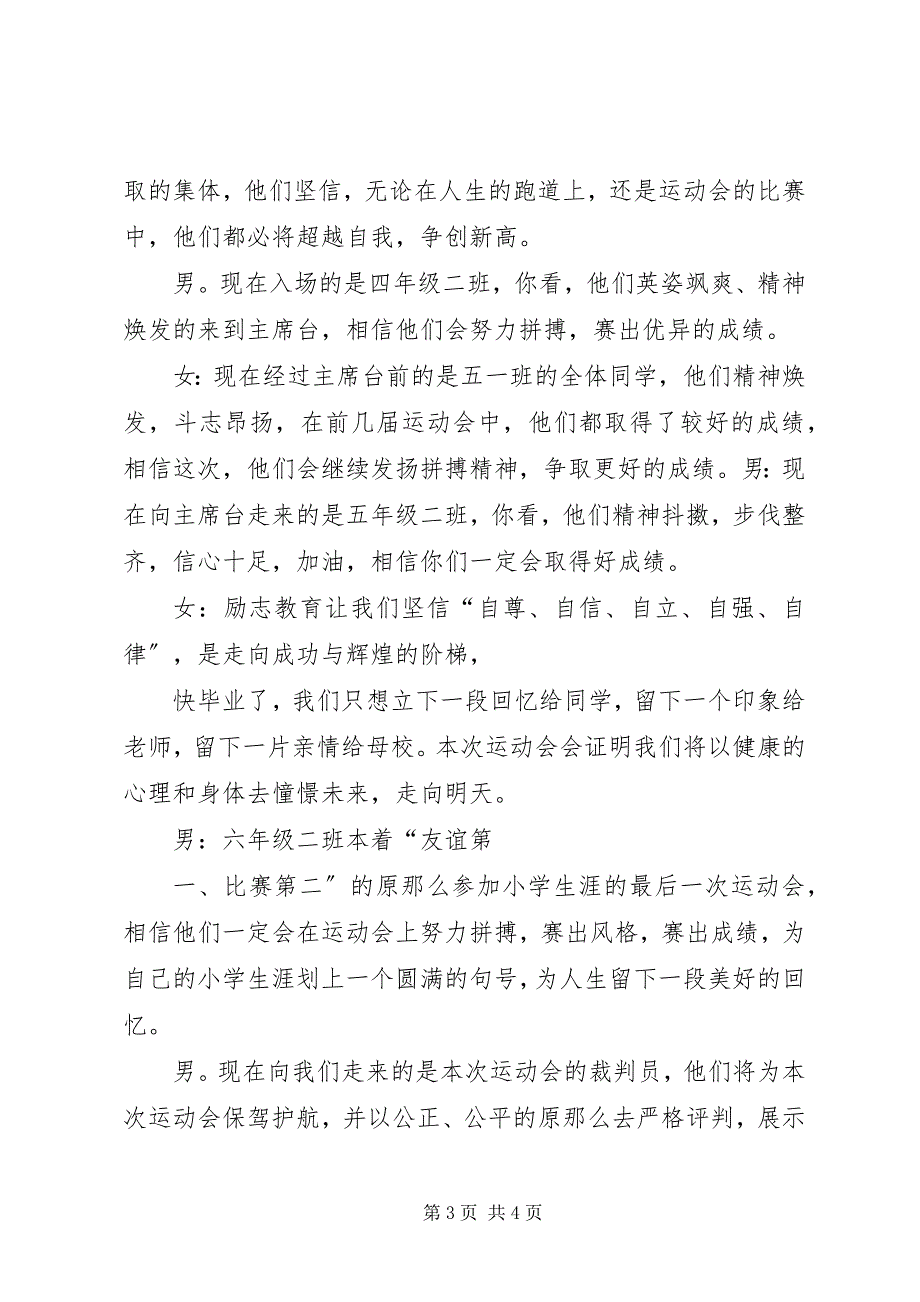 取的集体，他们坚信，无论在人生的跑道上，还是运动会的比赛
中，他们都必将超越自我，争创新高。
男。现在入场的是四年级二班，你看，他们英姿飒爽、精神
焕发的来到主席台，相信他们会努力拼搏，赛出优异的成绩。
女：现在经过主席台前的是五一班的全体同学，他们精神焕
发，斗志昂扬，在前几届运动会中，他们都取得了较好的成绩，
相信这次，他们会继续发扬拼搏精神，争取更好的成绩。男：现
在向主席台走来的是五年级二班，你看，他们精神抖擞，步伐整
齐，信心十足，加油，相信你们一定会取得好成绩。
女：励志教育让我们坚信“自尊、自信、自立、自强、自
律〞，是走向成功与辉煌的阶梯，
快毕业了，我们只想立下一段回忆给同学，留下一个印象给
老师，留下一片亲情给母校。本次运动会会证明我们将以健康的
心理和身体去憧憬未来，走向明天。
男：六年级二班本着“友谊第
一、比赛第二〞的原那么参加小学生涯的最后一次运动会，
相信他们一定会在运动会上努力拼搏，赛出风格，赛出成绩，为
自己的小学生涯划上一个圆满的句号，为人生留下一段美好的回
忆。
男。现在向我们走来的是本次运动会的裁判员，他们将为本
次运动会保驾护航，并以公正、公平的原那么去严格评判，展示
第 3 页 共 4 页